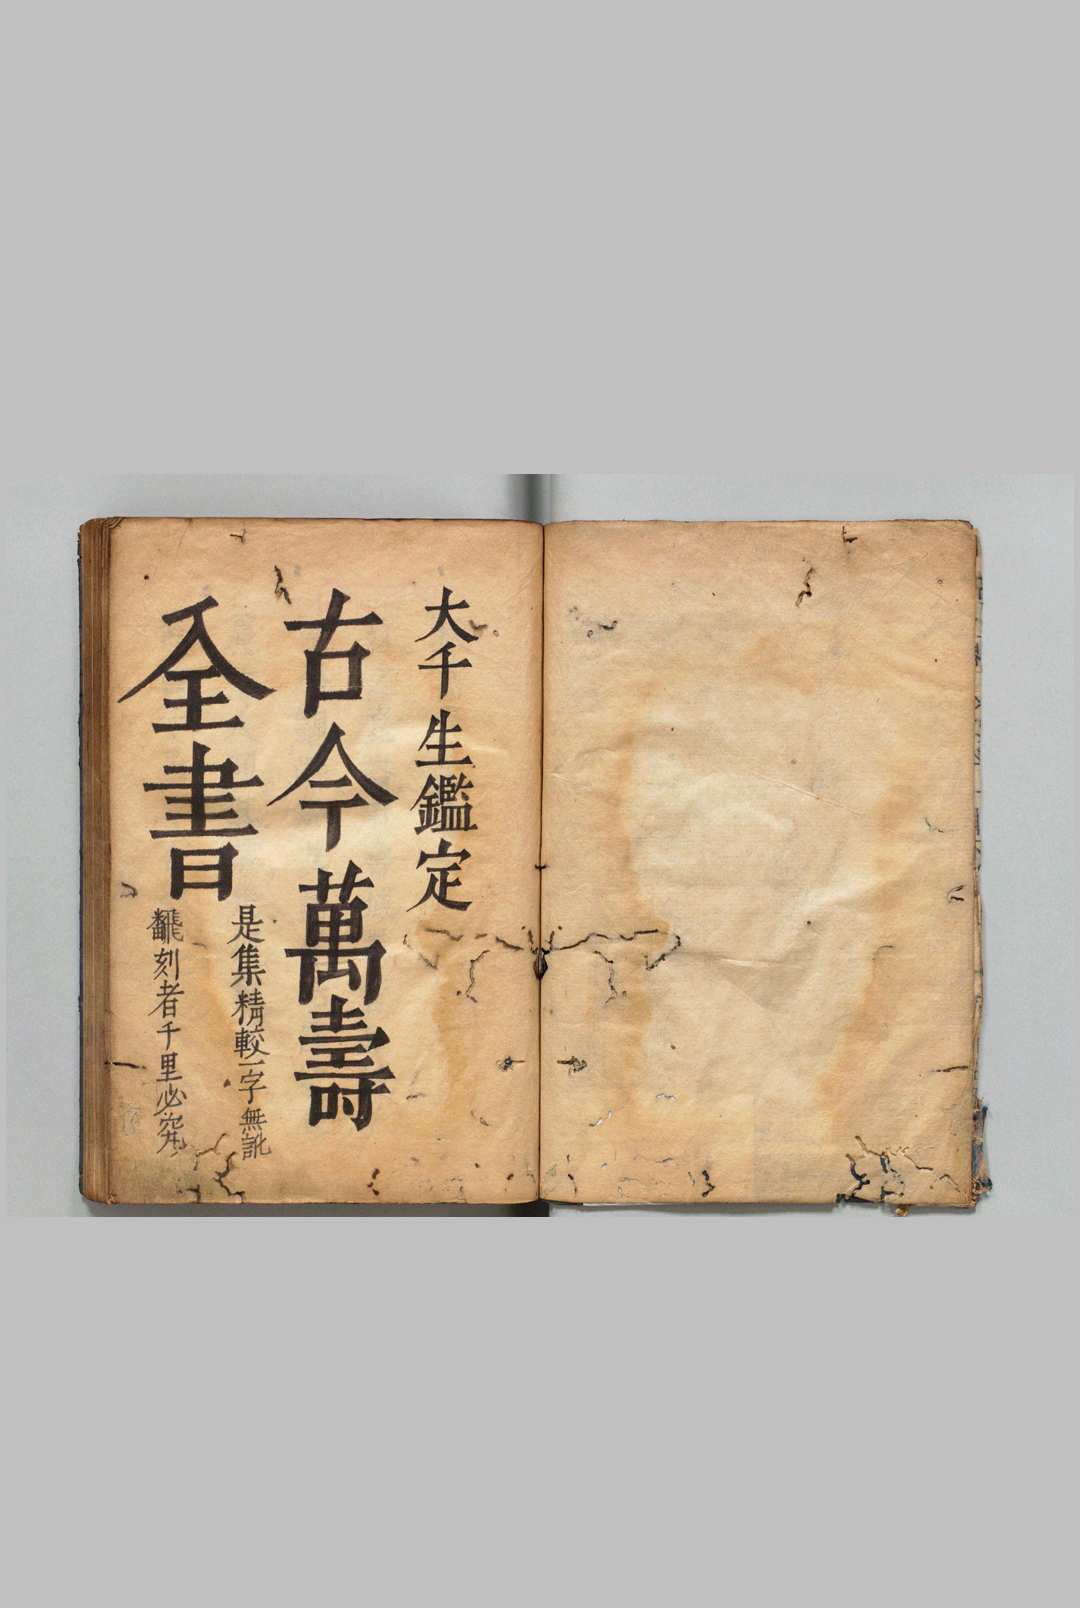 大千生鑑定
古今萬壽
全書
是集精較一字無訛
飜刻者千里必究